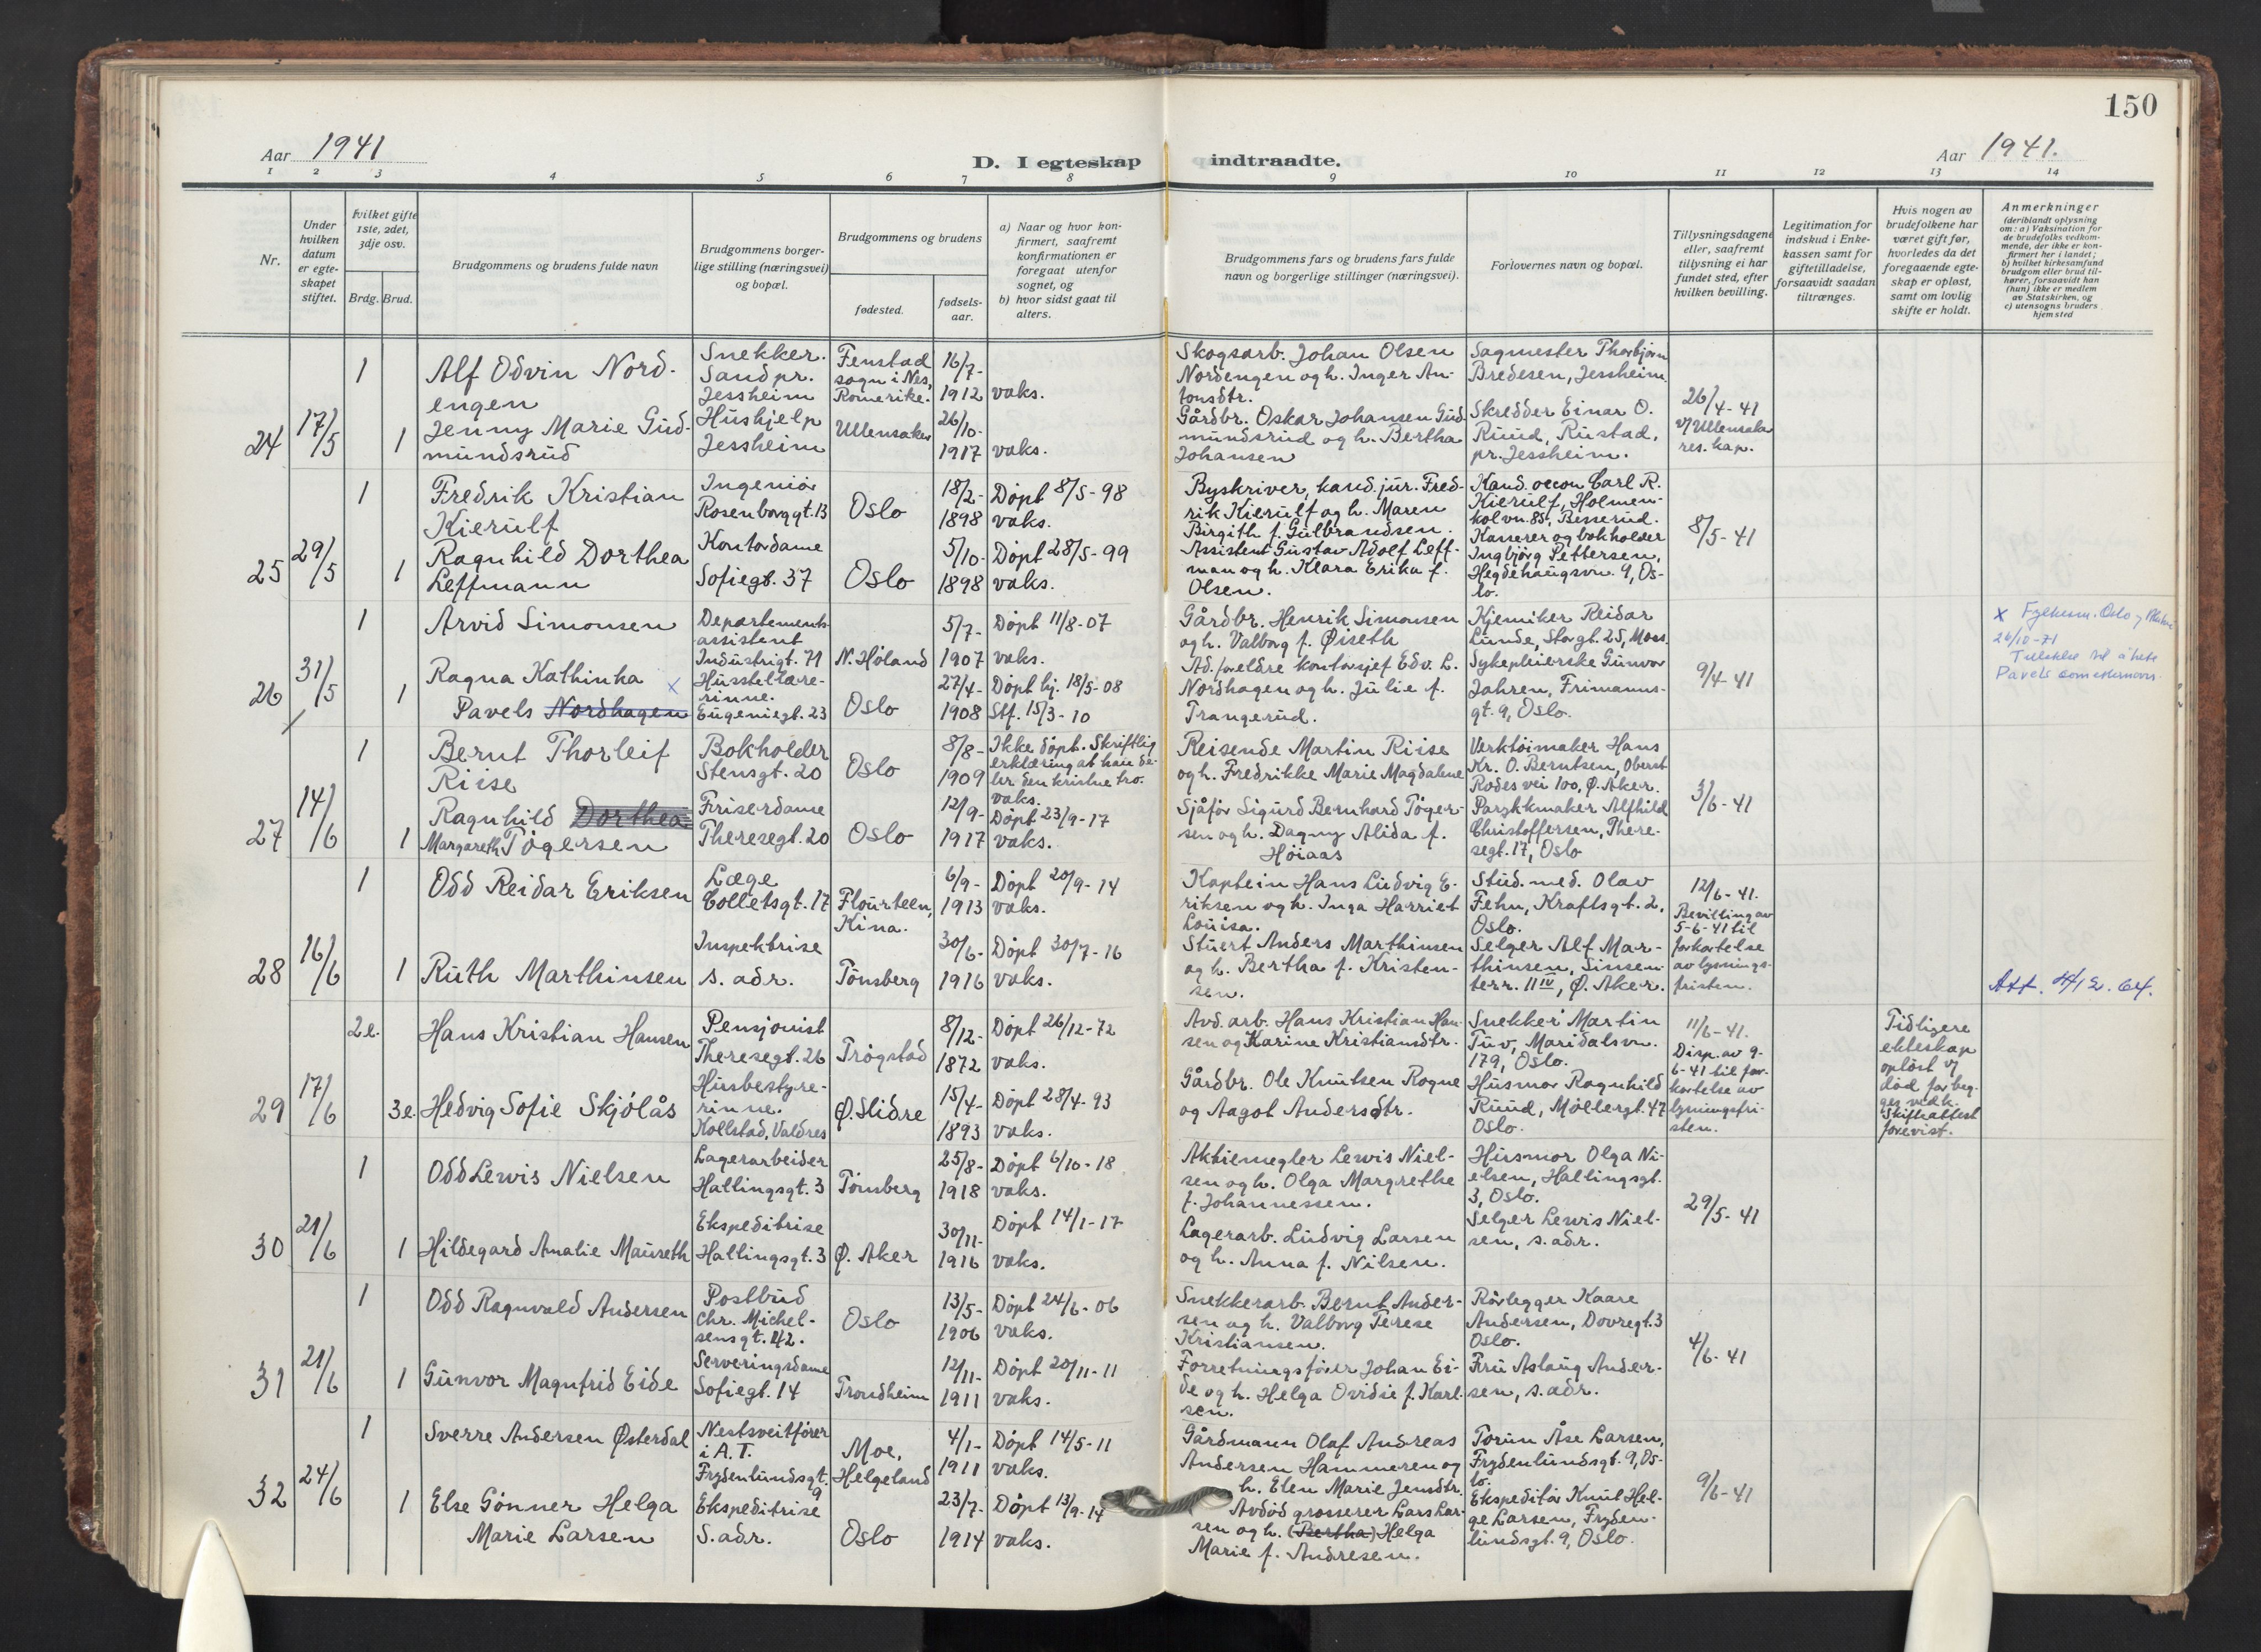 150
Aar 1941
D. I egteskap indtraadte.
Aar 1941.
1 2 3 4 5 6 7 8 9 10 11 12 13 14
Nr.
Under hvilken datum er egteskapet stiftet.
Hvilket gifte 1ste, 2det, 3dje osv.
Brdg. Brud.
Brudgommens og brudens fulde navn
Brudgommens borgerlige stilling (næringsvei) og bopæl.
Brudgommens og brudens
fødested.
fødselsaar.
a) Naar og hvor konfirmert, saafremt konfirmationen er foregaat utenfor sognet, og
b) hvor sidst gaat til alters.
Brudgommens fars og brudens fars fulde navn og borgerlige stillinger (næringsvei).
Forlovernes navn og bopæl.
Tillysningsdagene eller, saafremt tillysning ei har fundet sted, efter hvilken bevilling.
Legitimation for indskud i Enkekassen samt for giftetilladelse, forsaavidt saadan tiltrænges.
Hvis nogen av brudefolkene har været gift før, hvorledes da det foregaaende egteskap er opløst, samt om lovlig skifte er holdt.
Anmerkninger
(deriblandt oplysning om: a) Vaksination for de brudefolks vedkommende, der ikke er konfirmert her i landet;
b) hvilket kirkesamfund brudgom eller brud tilhører, forsaavidt han (hun) ikke er medlem av Statskirken, og
c) utensogns bruders hjemsted
24 17/5
1 Alf Odvin Nordengen
Snekker. Sand pr. Jessheim
Fenstad sogn i Nes, Romerike.
16/7- 1912 vaks.
Skogsarb. Johan Olsen Nordengen og h. Inger Antonsdtr.
Sagmester Thorbjørn Bredesen, Jessheim.
1 Jenny Marie Gudmundsrud
Hushjelp Jessheim
Ullensaker
26/10- 1917 vaks.
Gårdbr. Oskar Johansen Gudmundsrud og h. Bertha Johansen
Skredder Einar O. Ruud, Rustad, pr. Jessheim.
26/4-41 v/ Ullensaker res. kap.
25 29/5
1 Fredrik Kristian Kierulf
Ingeniør Rosenborggt. 13
Oslo
18/2- 1898
Døpt 8/5-98 vaks.
Byskriver, kand. jur. Fredrik Kierulf og h. Maren Birgith f. Gulbrandsen.
Kand. oecon Carl R. Kierulf, Holmenkolvn. 85, Besserud.
1 Ragnhild Dorthea Leffmann
Kontordame Sofiegt. 37
Oslo
5/10- 1898
Døpt 28/5-99 vaks.
Assistent Gustav Adolf Leffman og h. Klara Erika f. Olsen.
Kasserer og bokholder Ingbjørg Pettersen, Hegdehaugsvn. 9, Oslo.
8/5-41
26 31/5
1 Arvid Simonsen
Departementsassistent Industrigt. 71
N. Høland
5/7- 1907
Døpt 11/8-07 vaks.
Gårdbr. Henrik Simonsen og h. Valborg f. Øiseth
Kjemiker Reidar Lunde, Storgt. 25, Moss.
1 Ragna Kathinka x
Pavels Nordhagen
Husstellærerinne. Eugeniegt. 23
Oslo
27/4- 1908
Døpt hj. 18/5-08 Stf. 15/3-10
Ad.foreldre kontorsjef Edv. L. Nordhagen og h. Julie f. Trangerud.
Sykepleierske Gunvor Jahren, Frimannsgt. 9, Oslo.
9/4-41
x Fylkesm. Oslo og Akershus
26/10-71
Tillatelse til å hete
Pavels som etternavn.
27 14/6
1 Bernt Thorleif Riise
Bokholder Stensgt. 20
Oslo
8/8- 1909
Ikke døpt. Skriftlig erklæring at han deler den kristne tro. vaks.
Reisende Martin Riise og h. Fredrikke Marie Magdalene
Verktøimaker Hans Kr. O. Berntsen, Oberst Rodes vei 100, Ø. Aker.
1 Ragnhild Dorthea
Margareth Tøgersen
Friserdame Theresegt. 20
Oslo
12/9- 1917
Døpt 23/9-17 vaks.
Sjåfør Sigurd Bernhard Tøgersen og h. Dagny Alida f. Høiaas
Parykkmaker Alfhild Christoffersen, Theresegt. 17, Oslo
3/6-41
28 16/6
1 Odd Reidar Eriksen
Læge Colletsgt. 17
Flourteen, Kina.
6/9- 1913
Døpt 20/9-14 vaks.
Kaptein Hans Ludvig Eriksen og h. Inga Harriet Louisa.
Stud. med. Olav Fehn, Kraftsgt. 2, Oslo.
1 Ruth Marthinsen
Inspektrise s. adr.
Tønsberg
30/6- 1916
Døpt 30/7-16 vaks.
Stuert Anders Marthinsen og h. Bertha f. Kristensen.
Selger Alf Marthinsen, Sinsenterr. 11 IV, Ø. Aker.
12/6-41. Bevilling av 5-6-41 til forkortelse av lysningsfristen.
Att. 4/12.64.
29 17/6
2e. Hans Kristian Hansen
Pensjonist Theresegt. 26
Trøgstad
8/12- 1872
Døpt 26/12-72 vaks.
Avd. arb. Hans Kristian Hansen og Karine Kristiansdtr.
Snekker Martin Tuv, Maridalsvn. 179, Oslo.
3e. Hedvig Sofie Skjølås
Husbestyrerinne. Kollstad, Valdres
Ø. Slidre
15/4- 1893
Døpt 28/4-93 vaks.
Gårdbr. Ole Knutsen Rogne og Aagot Andersdtr.
Husmor Ragnhild Ruud, Møllergt. 47 Oslo.
11/6-41. Disp. av 9-6-41 til forkortelse av lysningsfristen.
Tidligere ekteskap opløst v/ død for begges vedk. Skifteattest forevist.
30 21/6
1 Odd Lewis Nielsen
Lagerarbeider Hallingsgt. 3
Tønsberg
25/8- 1918
Døpt 6/10-18 vaks.
Aktiemegler Lewis Nielsen og h. Olga Margrethe f. Johannessen.
Husmor Olga Nielsen, Hallingsgt. 3, Oslo.
1 Hildegard Amalie Mauseth
Ekspeditrise Hallingsgt. 3
Ø. Aker
30/11- 1916
Døpt 14/1-17 vaks.
Lagerarb. Ludvig Larsen og h. Anna f. Nilsen.
Selger Lewis Nielsen, s. adr.
29/5-41
31 21/6
1 Odd Ragnvald Andersen
Postbud Chr. Michelsensgt. 42.
Oslo
13/5- 1906
Døpt 24/6-06 vaks.
Snekkerarb. Bernt Andersen og h. Valborg Terese Kristiansen.
Rørlegger Kaare Andersen, Dovregt. 3 Oslo.
1 Gunvor Magnfrid Eide
Serveringsdame Sofiegt. 14
Trondheim
12/11- 1911
Døpt 20/11-11 vaks.
Forretningsfører Johan Eide og h. Helga Ovidie f. Karlsen.
Fru Aslaug Andersen, s. adr.
4/6-41
32 24/6
1 Sverre Andersen Østerdal
Nestsveitfører i A.T. Frydenlundsgt. 9
Moe, Helgeland
4/1- 1911
Døpt 14/5-11 vaks.
Gårdmann Olaf Andreas Andersen Hammeren og h. Elen Marie Jensdtr.
Torun Åse Larsen, Frydenlundsgt. 9, Oslo.
1 Else Gønner Helga Marie Larsen
Ekspeditrise S. adr.
Oslo
23/7- 1914
Døpt 13/9-14 vaks.
Avdød grosserer Lars Larsen og h. (Bertha) Helga Marie f. Andresen.
Ekspeditør Knut Helge Larsen, Frydenlundsgt. 9, Oslo.
9/6-41